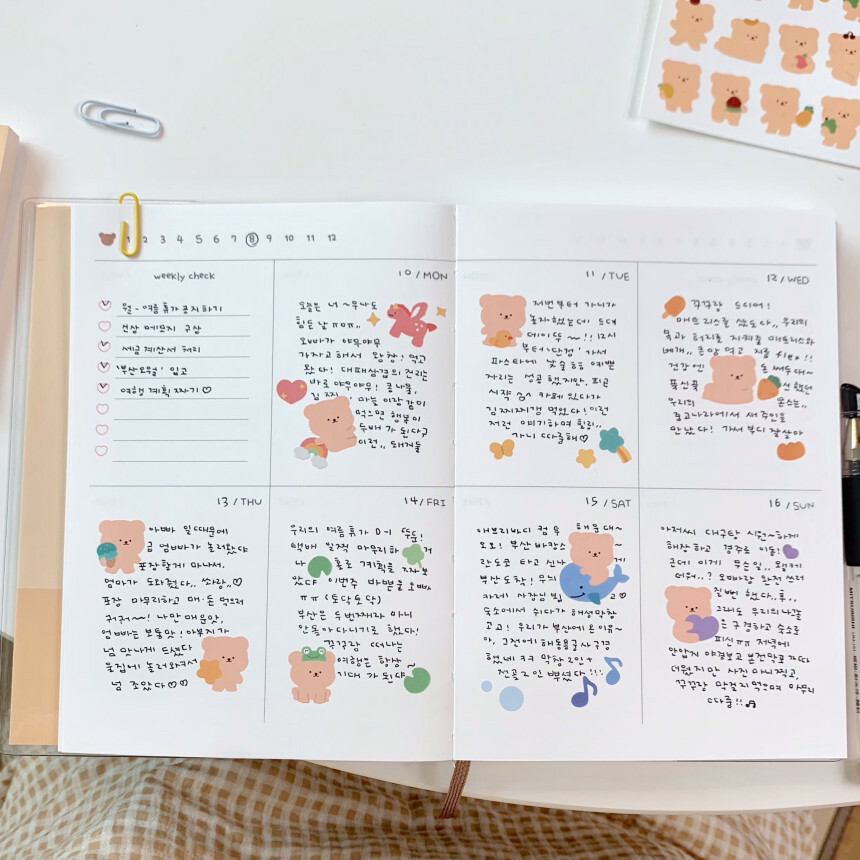 1 2 3 4 5 6 7 8 9 10 11 12
weekly check
월 - 여름 휴가 공지하기
전상 메모지 구상
세금계산서 처리
'부산오월' 입고
여행 계획 짜기♡
10/MON
오늘은 너~무나도
힘든 날 ㅠㅁㅠ,,
오빠가 야무야무
가자고 해서 왕창! 먹고
왔다! 대패삼겹의 진리는
바로 야무야무! 콩나물,
김 마늘 이랑 같이
먹으면 행복이
두배가 된다구
이런,, 돼지들
11/TUE
저번부터 가니가
놀자했는데 드뎌
데이뚜~!! 12시
부터 '단검' 가서
파스타에 낮술을 예쁜
자리는 성공했지만, 피곤
시작 카페 있다가
김찌찌갬 먹었다! 이런
저런 얘기하며 힐링,,
가니 따룽해♡
12/WED
꾸꾸랑 드디어!
매트리스를 샀도다,, 우리의
목과 허리를 지켜줄 매트리스와
베개,, 큰맘 먹고 저를 flex!!
건강엔 돈 써두대~
우리의
중고나라에서 새 주인을
만났다! 가서 부디 잘 살아
13/THU
아빠 일때문에
엄빠가 놀러왔다
포장 함께 하나서,
엄마가 도와줬다.. 쏴랑,,♡
포장 마무리하고 매·돈 먹으러
규규~! 나만 매운맛,
엄빠는 보통맛! 아부지가
넘 맛나게 드셨다
울집에 놀러와줘서
넘 조았다♡♡
14/FRI
우리의 여름휴가 D-1 뚜둔!
택배 일찍 마무리하
나 홀로 계획을 짜보
았다 이번주 바쁜 울 오빠
ㅠㅠ (토닥토닥)
부산은 두번째라 마니
안돌아다니기로 했다!
꾸꾸랑 떠나는
여행은 항상~
기대가 된당
15/SAT
에브리바디 컴 위 해운대~
오오! 부산바캉스
란도코 타고 신나 게
부산도착!
차례 사장님 뵙고♡
숙소에서 쉬다가 해성막창
고고! 우리가 부산에 온 이유~
아, 그전에 해동용궁사 구경
했네ㅋㅋ 막창 2인+
전골 2인 뿌셨다!!!
16/SUN
아저씨 대구탕 시원~하게
해장하고 경주로 이동!
근데 이게 무슨 일.. 왕케
더워..? 오빠랑 완전 쓰러
질뻔 했다..후,,
그래도 우리의 나긋놀
은 구경하고 숙소로
피신ㅠㅠ 저녁에
안압지 야경보고 본전만큼 가따
더웠지만 사진 마니찍고,
꾸꾸랑 막걸지 먹으며 마무리
따룽!!♬